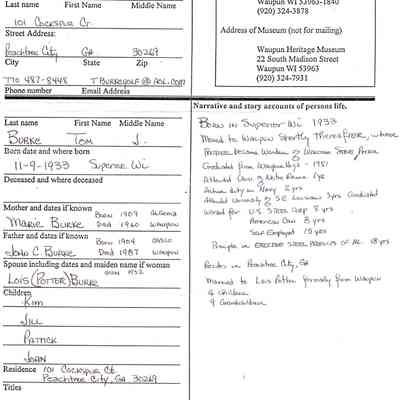 Last name First Name Middle Name
101 Cockspur Ct
Street Address:
Peachtree City, GA 30269
City State Zip
770 487-8448 TBurkeGolf@AOL.com
Phone number Email Address
Waupun WI 53963-1840
(920) 324-3878
Address of Museum (not for mailing)
Waupun Heritage Museum
22 South Madison Street
Waupun WI 53963
(920) 324-7931
Last name First Name Middle Name
Burke Tom J.
Born date and where born
11-9-1933 Superior Wi
Deceased and where deceased
Mother and dates if known Born 1909
Marie Burke Died 1960 Waupun
Father and dates if known Born 1904
John C. Burke Died 1987 Waupun
Spouse including dates and maiden name if woman
Born 1932
Lois (Potter) Burke
Children
Kim
Jill
Patrick
John
Residence 101 Cockspur Ct.
Peachtree City, GA 30269
Titles
Narrative and story accounts of persons life.
Born in Superior Wi 1933
Moved to Waupun Shortly Thereafter, where
Father became Warden of Waupun State Prison
Graduated from Waupun High - 1951
Attended Univ of Notre Dame 1yr
Active duty in Navy 2 yrs
Attended University 3yrs Graduated
Worked for U.S. Steel Corp 8 yrs
American Can 8 yrs
Self Employed 10 yrs
Principle in Erected Steel Products of AL 18 yrs
Resides in Peachtree City, GA
Married to Lois Potter formerly from Waupun
4 Children
9 Grandchildren